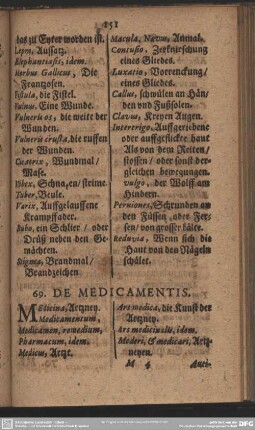 251
das zu Eyter worden ist.
Lepra, Aussatz.
Elephantiasis, idem.
Morbus Gallicus, Die
Frantzosen.
Fistula, die Fistel.
Vulnus. Eine Wunde.
Vulneris os, die weite der
Wunden.
Vulneris crusta, die ruffen
der Wunden.
Cicatrix, Wundmal/
Mase.
Vibex, Schna,en/strime.
Tuber, Beule.
Varix, Auffgelauffene
Krampffader.
Bubo, ein Schlier/ oder
Drüß neben den Ge-
mächten.
Stigma, Brandmal/
Brandzeichen.
Macula, Nævus, Anmal.
Contusio, Zerknirschung
eines Gliedes.
Luxatio, Verrenckung/
eines Gliedes.
Callus, schwülen an Hän-
den vnd Fußsolen.
Clavus, Kreyen Augen.
Intertrigo, Auffgerieben
oder auffgefickte haut
Als von dem Reiten/
stossen/ oder sonst der-
gleichen bewegungen.
vulgò, der Wolff am
Hindern.
Perniones, Schrunden an
den Füssen oder Fer-
sen/ von grosser kälte.
Reduvia, Wenn sich die
Haut von den Nägeln
schälet.
69. DE MEDICAMENTIS.
Medicina, Artzney.
Medicamentum,
Medicamen, remedium,
Pharmacum, idem.
Medicus, Artzt.
Ars medica, die Kunst der
Artzney.
Ars medicinalis, idem.
Mederi, & medicari, Artz-
neyen.
M 4